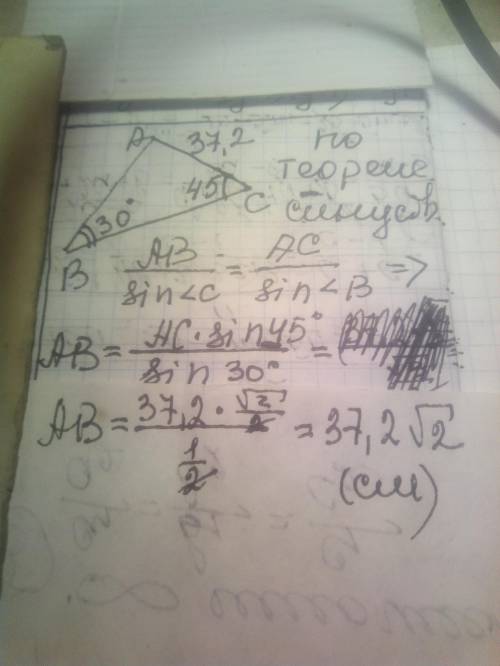 A 37,2 по
45° теореме
C синусов.
30°
B AB/sin<C = AC/sin<B =>
AB = AC·sin45°/sin 30° =
AB = 37,2·√2/2 / 1/2 = 37,2√2
(см)